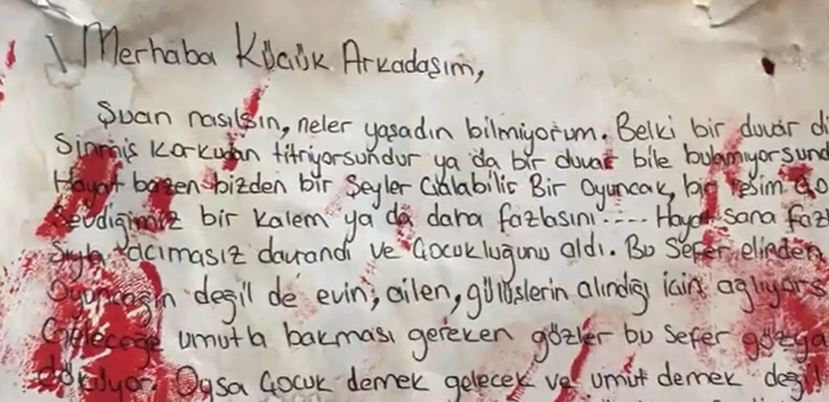 Merhaba Küçük Arkadaşım,
Şuan nasılsın, neler yaşadın bilmiyorum. Belki bir duvar di
Sinmiş korkudan titriyorsundur ya da bir duvar bile bulamıyorsund
Hayat bazen bizden bir Şeyler Çalabilir Bir Oyuncak, bir resim Ço
Sevdiğimiz bir kalem ya da daha fazlasını.... Hayat sana fazl
acımasız davrandı ve Çocukluğunu aldı. Bu Sefer elinden
Oyuncağın değil de evin, ailen, gülüşlerin alındığı için ağlıyors
Geleceğe umutla bakması gereken gözler bu sefer gözya
döküyor. Oysa Çocuk demek gelecek ve umut demek değil